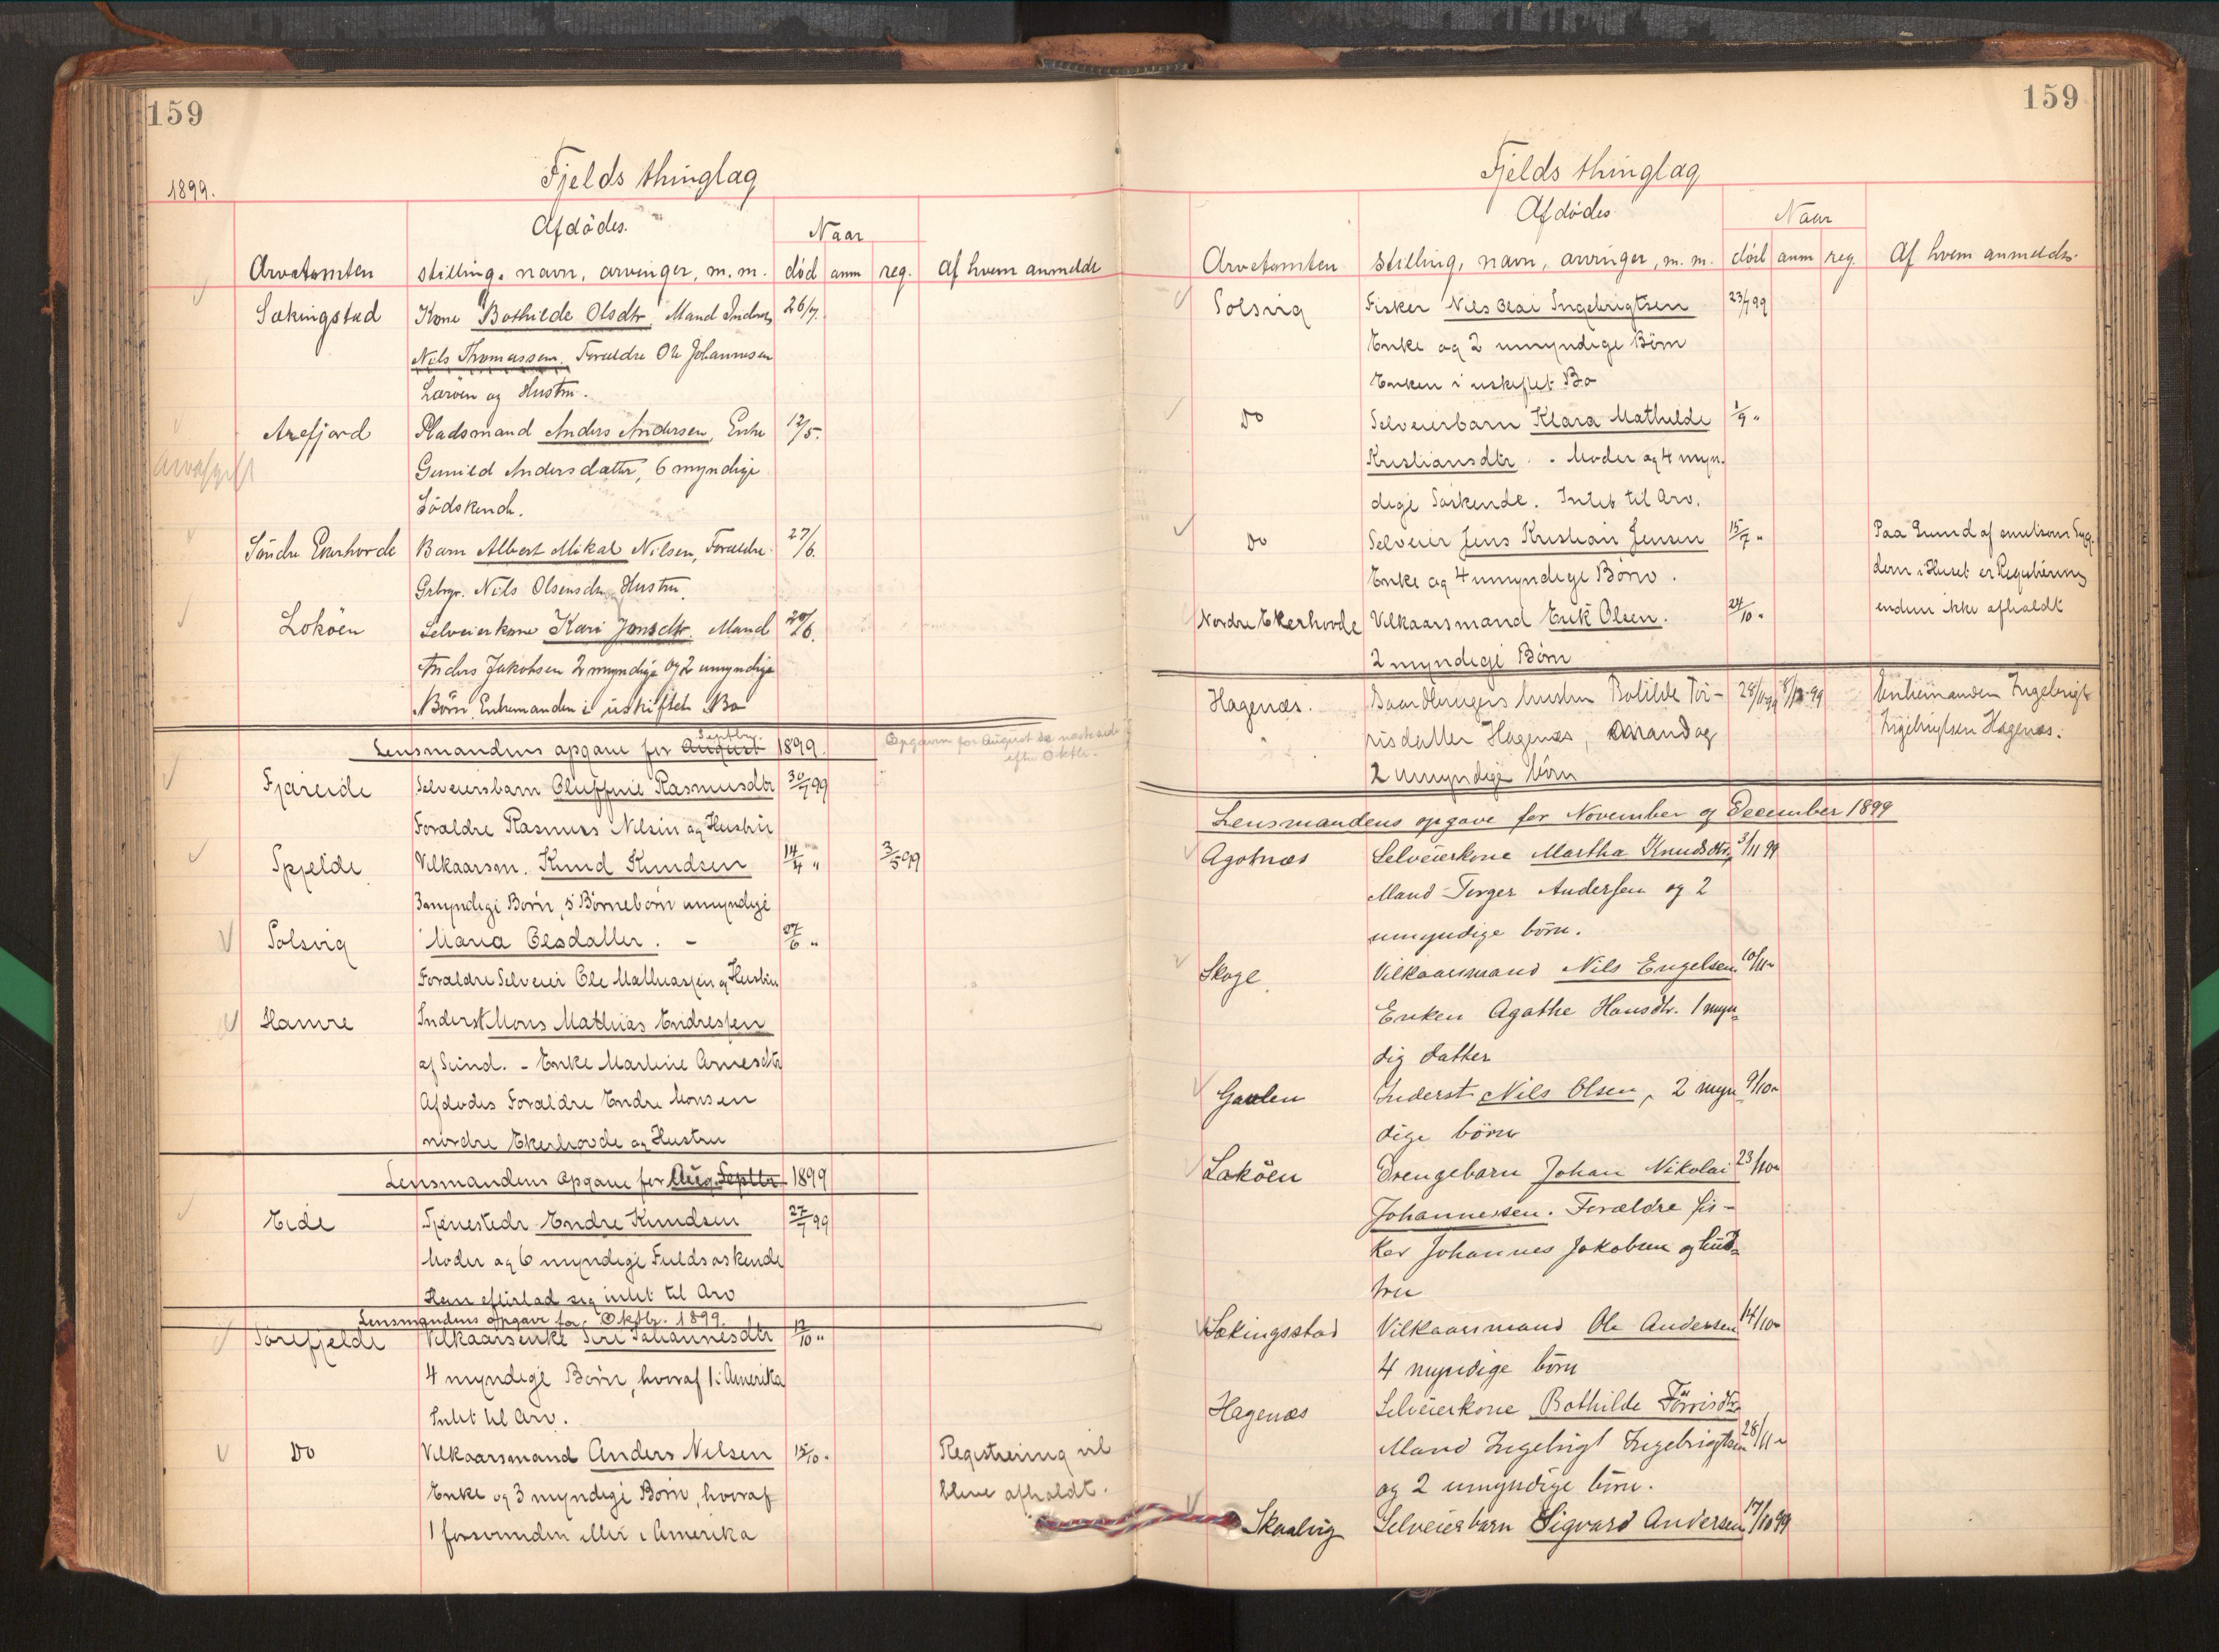 159
1899.
Fjelds thinglag
Afdödes.
Naar
Arvetomten stilling, navn, arvinger, m. m. död anm reg. Af hvem anmeldt
Sækingstad Kone Bothilde Olsdtr, Mand Inders 26/7.
Nils Thomassen. Forældre Ole Johannesen
Larven og Hustru.
Arefjord Pladsmand Anders Andersen, Enke 12/5.
Arveafgift Gunild Andersdatter, 6 myndige
Södskende.
Söndre Ekerhovde Barn Albert Mikal Nilsen, Forældre 27/6.
Grbrgr. Nils Olsen og Hustru.
Loköen Selveierkone Kari Jonsdtr. Mand 20/6.
Anders Jakobsen 2 myndige og 2 umyndige
Börn. Enkemanden i uskiftet Bo
Lensmandens opgave for August Septbr. 1899. Opgaven for August se næste side
efter Oktbr.
Fjæreide Selveiersbarn Oluffine Rasmusdtr 30/7 99
Forældre Rasmus Nilsen og Hustru
Spjelde Vilkaarsm. Knud Knudsen 14/4 " 3/5 99
3 myndige Börn, 5 Börnebörn umyndige
Solsvig Maria Olsdatter. - 27/6 "
Forældre Selveier Ole Mathiassen og Hustru
Hamre Inderst Mons Mathias Endressen
af Sund. - Enke Martine Arnesdtr
Afdödes Forældre Endre Monsen
nordre Ekerhovde og Hustru
Lensmandens Opgave for Aug. Septbr 1899
Eide Tjenestedr Endre Knudsen 27/7 99
Moder og 6 myndige Fuldsöskende
Han efterlad sig intet til Arv
Lensmandens opgave for Oktbr. 1899.
Törefjelde Vilkaarsenke Siri Johannesdtr 12/10 "
4 myndige Börn, hvoraf 1 i Amerika
Intet til Arv.
Do Vilkaarsmand Anders Nilsen 15/10 " Registrering vil
Enke og 3 myndige Börn, hvoraf blive afholdt.
1 forsvunden eller i Amerika
159
Fjelds thinglag
Afdödes
Naar
Arvetomten stilling, navn, arvinger, m. m. död anm reg. Af hvem anmeldt
Solsvig Fisker Nils Olai Ingebrigtsen 23/7 99
Enke og 2 umyndige Börn
Enken i uskiftet Bo
Do Selveierbarn Klara Mathilde 1/9 "
Kristiansdtr. Moder og 4 myn-
dige Söskende. Intet til Arv.
Do Selveier Jens Kristian Jensen 15/7 " Paa Grund af smitsom Syg-
Enke og 4 umyndige Börn. dom i Huset er Registrering
Nordre Ekerhovde Vilkaarsmand Erik Olsen. 24/10 " endnu ikke afholdt
2 myndige Börn
Hagenæs. Gaardbrugers hustru Botilde Tör- 28/11 99 8/12-99 Enkemanden Ingebrigt
risdatter Hagenæs, Mand og Ingebrigtsen Hagenæs.
2 umyndige börn
Lensmandens opgave for November og December 1899
Agotnæs Selveierkone Martha Knudsdtr. 3/11 99
Mand Torger Andersen og 2
umyndige börn.
Skoge. Vilkaarsmand Nils Engelsen 10/11 "
Enken Agathe Hansdtr. 1 myn-
dig datter
Gaalen Inderst Nils Olsen, 2 myn- 9/10 "
dige börn
Loköen Drengebarn Johan Nikolai 23/10 "
Johannessen. Forældre fis-
ker Johannes Jakobsen og hus-
tru
Sækingsstad Vilkaarsmand Ole Andersen 14/10 "
4 myndige börn
Hagenæs Selveierkone Bothilde Törrisdtr
Mand Ingebrigt Ingebrigtsen 28/11 "
og 2 umyndige börn.
Skaalvig Selveierbarn Sigvard Andersen 17/10 99